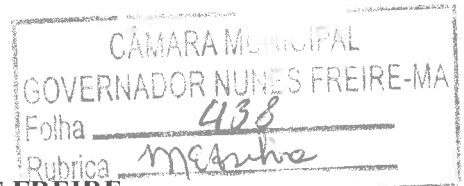 CÂMARA MUNICIPAL
GOVERNADOR NUNES FREIRE-MA
Folha 438
Rubrica
FREIRE